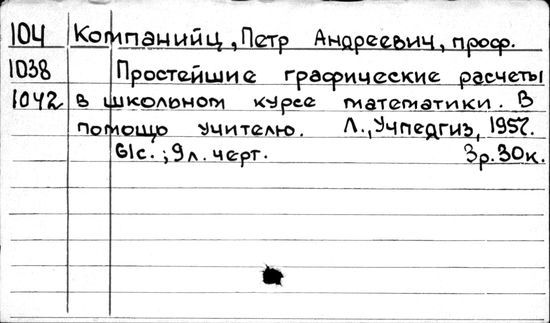 104 Компанийц, Петр Андреевич, проф.
1038 Простейшие графические расчеты
1042 в школьном курсе математики. В
помощь учителю. Л., Учпедгиз, 1957.
61с.; 9л. черт. 3р.30к.